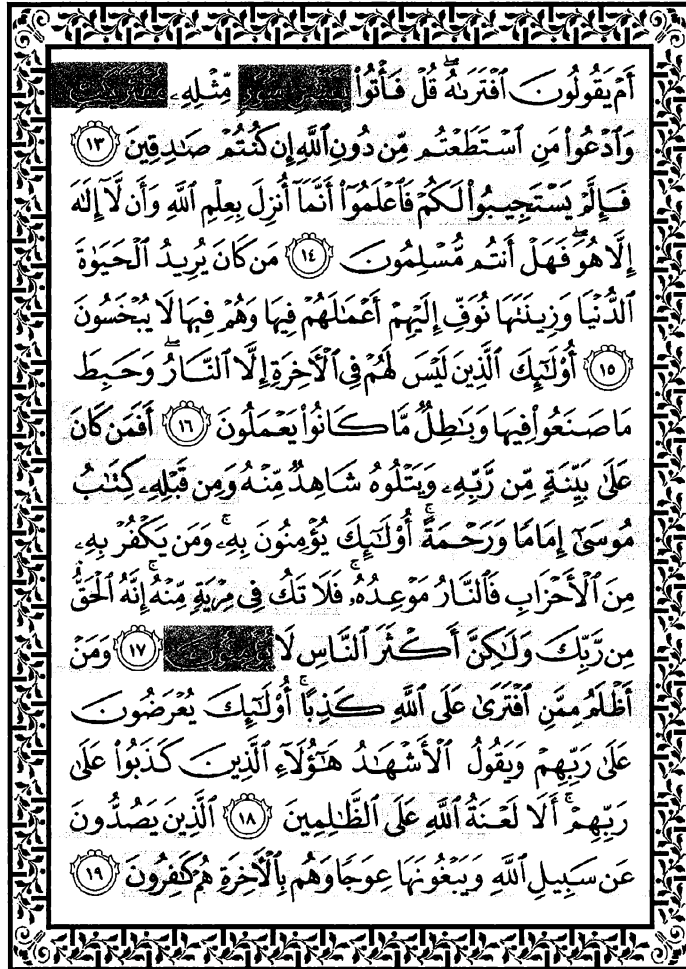 أَمْ يَقُولُونَ ٱفْتَرَىٰهُ ۖ قُلْ فَأْتُوا۟ مِّثْلِهِۦ
وَٱدْعُوا۟ مَنِ ٱسْتَطَعْتُم مِّن دُونِ ٱللَّهِ إِن كُنتُمْ صَـٰدِقِينَ ١٣
فَإِلَّمْ يَسْتَجِيبُوا۟ لَكُمْ فَٱعْلَمُوٓا۟ أَنَّمَآ أُنزِلَ بِعِلْمِ ٱللَّهِ وَأَن لَّآ إِلَـٰهَ
إِلَّا هُوَ ۖ فَهَلْ أَنتُم مُّسْلِمُونَ ١٤ مَن كَانَ يُرِيدُ ٱلْحَيَوٰةَ
ٱلدُّنْيَا وَزِينَتَهَا نُوَفِّ إِلَيْهِمْ أَعْمَـٰلَهُمْ فِيهَا وَهُمْ فِيهَا لَا يُبْخَسُونَ
١٥ أُو۟لَـٰٓئِكَ ٱلَّذِينَ لَيْسَ لَهُمْ فِى ٱلْـَٔاخِرَةِ إِلَّا ٱلنَّارُ ۖ وَحَبِطَ
مَا صَنَعُوا۟ فِيهَا وَبَـٰطِلٌ مَّا كَانُوا۟ يَعْمَلُونَ ١٦ أَفَمَن كَانَ
عَلَىٰ بَيِّنَةٍ مِّن رَّبِّهِۦ وَيَتْلُوهُ شَاهِدٌ مِّنْهُ وَمِن قَبْلِهِۦ كِتَـٰبُ
مُوسَىٰٓ إِمَامًا وَرَحْمَةً ۚ أُو۟لَـٰٓئِكَ يُؤْمِنُونَ بِهِۦ ۚ وَمَن يَكْفُرْ بِهِۦ
مِنَ ٱلْأَحْزَابِ فَٱلنَّارُ مَوْعِدُهُۥ ۚ فَلَا تَكُ فِى مِرْيَةٍ مِّنْهُ ۚ إِنَّهُ ٱلْحَقُّ
مِن رَّبِّكَ وَلَـٰكِنَّ أَكْثَرَ ٱلنَّاسِ لَا ١٧ وَمَنْ
أَظْلَمُ مِمَّنِ ٱفْتَرَىٰ عَلَى ٱللَّهِ كَذِبًا ۚ أُو۟لَـٰٓئِكَ يُعْرَضُونَ
عَلَىٰ رَبِّهِمْ وَيَقُولُ ٱلْأَشْهَـٰدُ هَـٰٓؤُلَآءِ ٱلَّذِينَ كَذَبُوا۟ عَلَىٰ
رَبِّهِمْ ۚ أَلَا لَعْنَةُ ٱللَّهِ عَلَى ٱلظَّـٰلِمِينَ ١٨ ٱلَّذِينَ يَصُدُّونَ
عَن سَبِيلِ ٱللَّهِ وَيَبْغُونَهَا عِوَجًا وَهُم بِٱلْـَٔاخِرَةِ هُمْ كَـٰفِرُونَ ١٩